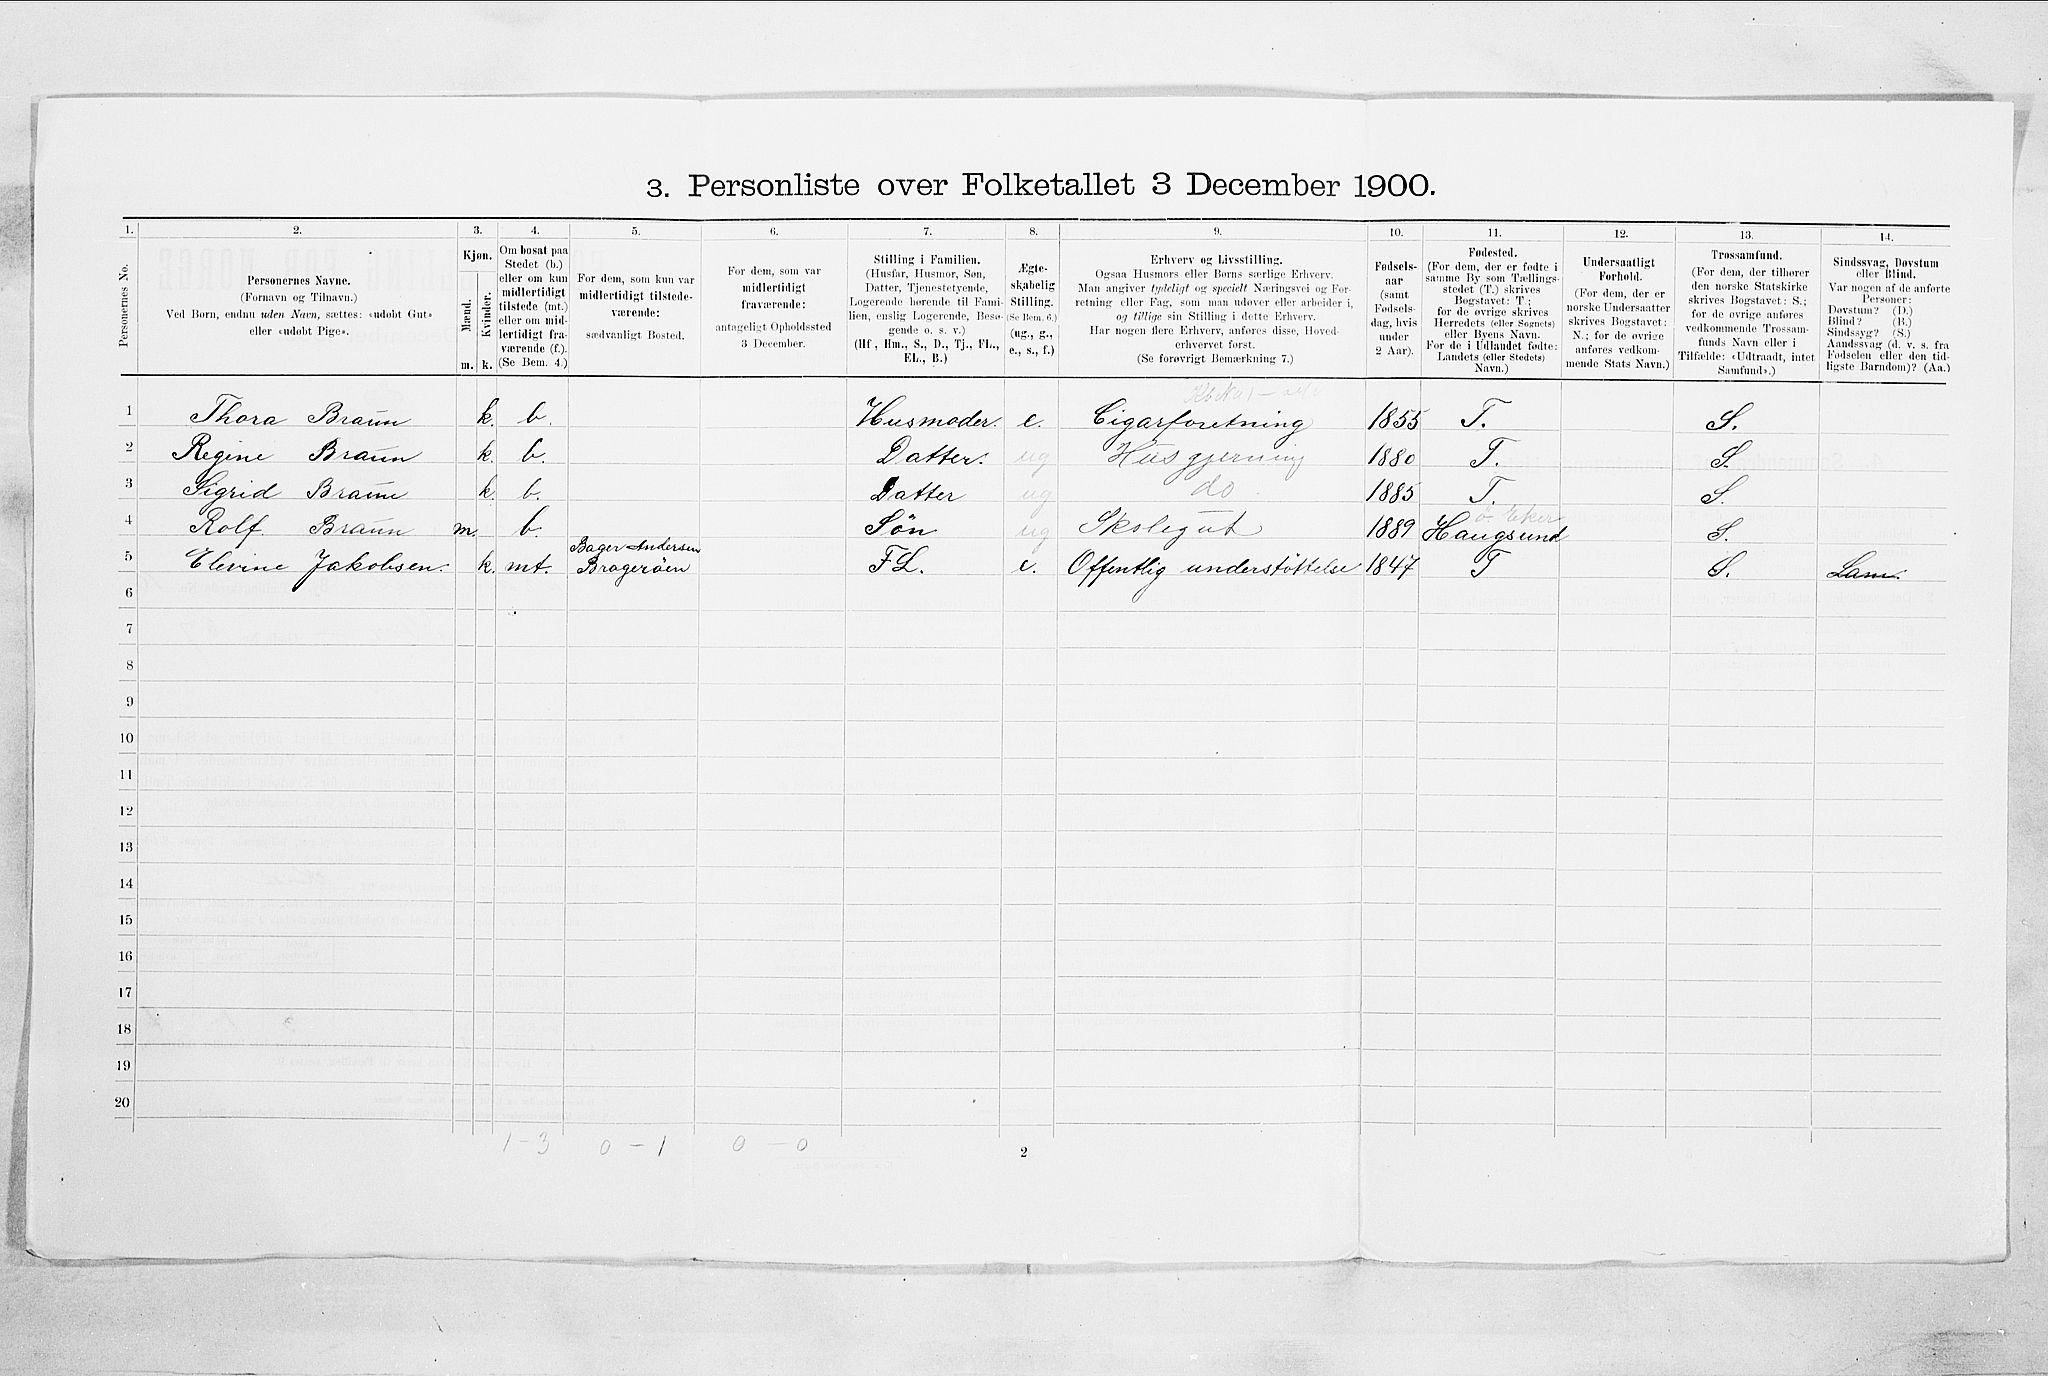 3. Personliste over Folketallet 3 December 1900.
1. 2. 3. 4. 5. 6. 7. 8. 9. 10. 11. 12. 13. 14.
Personernes No.
Personernes Navne.
(Fornavn og Tilnavn.)
Ved Børn, endnu uden Navn, sættes: «udøbt Gut»
eller «udøbt Pige».
Kjøn.
Mænd.
Kvinder.
m. k.
Om bosat paa
Stedet (b.)
eller om kun
midlertidigt
tilstede (mt.)
eller om mid-
lertidigt fra-
værende (f.).
(Se Bem. 4.)
For dem, som kun var
midlertidigt tilstede-
værende:
sædvanligt Bosted.
For dem, som var
midlertidigt
fraværende:
antageligt Opholdssted
3 December.
Stilling i Familien.
(Husfar, Husmor, Søn,
Datter, Tjenestetyende,
Logerende hørende til Fami-
lien, enslig Logerende, Besø-
gende o. s. v.)
(Hf., Hm., S., D., Tj., FL.,
EL., B.)
Ægte-
skabelig
Stilling.
(Se Bem. 6.)
(ug., g.,
e., s., f.)
Erhverv og Livsstilling.
Ogsaa Husmors eller Børns særlige Erhverv.
Man angiver tydeligt og specielt Næringsvei og For-
retning eller Fag, som man udøver eller arbeider i,
og tillige sin Stilling i dette Erhverv.
Har nogen flere Erhverv, anføres disse, Hoved-
erhvervet først.
(Se forøvrigt Bemærkning 7.)
Fødsels-
aar
(samt
Fødsels-
dag, hvis
under
2 Aar).
Fødested.
(For dem, der er fødte i
samme By som Tællings-
stedet (T.) skrives
Bogstavet: T.;
for de øvrige skrives
Herredets (eller Sognets)
eller Byens Navn.
For de i Udlandet fødte:
Landets (eller Stedets)
Navn.)
Undersaatligt
Forhold.
(For dem, der er
norske Undersaatter
skrives Bogstavet:
N.; for de øvrige
anføres vedkom-
mende Stats Navn.)
Trossamfund.
(For dem, der tilhører
den norske Statskirke
skrives Bogstavet: S.;
for de øvrige anføres
vedkommende Trossam-
funds Navn eller i
Tilfælde: «Udtraadt, intet
Samfund».)
Sindssvag, Døvstum
eller Blind.
Var nogen af de anførte
Personer:
Døvstum? (D.)
Blind? (B.)
Sindssyg? (S.)
Aandssvag (d. v. s. fra
Fødselen eller den tid-
ligste Barndom)? (Aa.)
1 Thora Braun k. b. Husmoder. e. Cigarforetning 1855 T. S.
2 Regine Braun k. b. Datter. ug Husgjerning 1880 T. S.
3 Sigrid Braun k. b. Datter ug do 1885 T. S.
ø. Eker
4 Rolf Braun m. b. Søn ug Skolegut 1889 Haugsund S.
Bager Andersen
5 Elevine Jakobsen. k. mt. Bragerøen FL. e. Offentlig understøttelse 1847 T S. Lam.
6
7
8
9
10
11
12
13
14
15
16
17
18
19
20
1-3 0-1 0-0
2